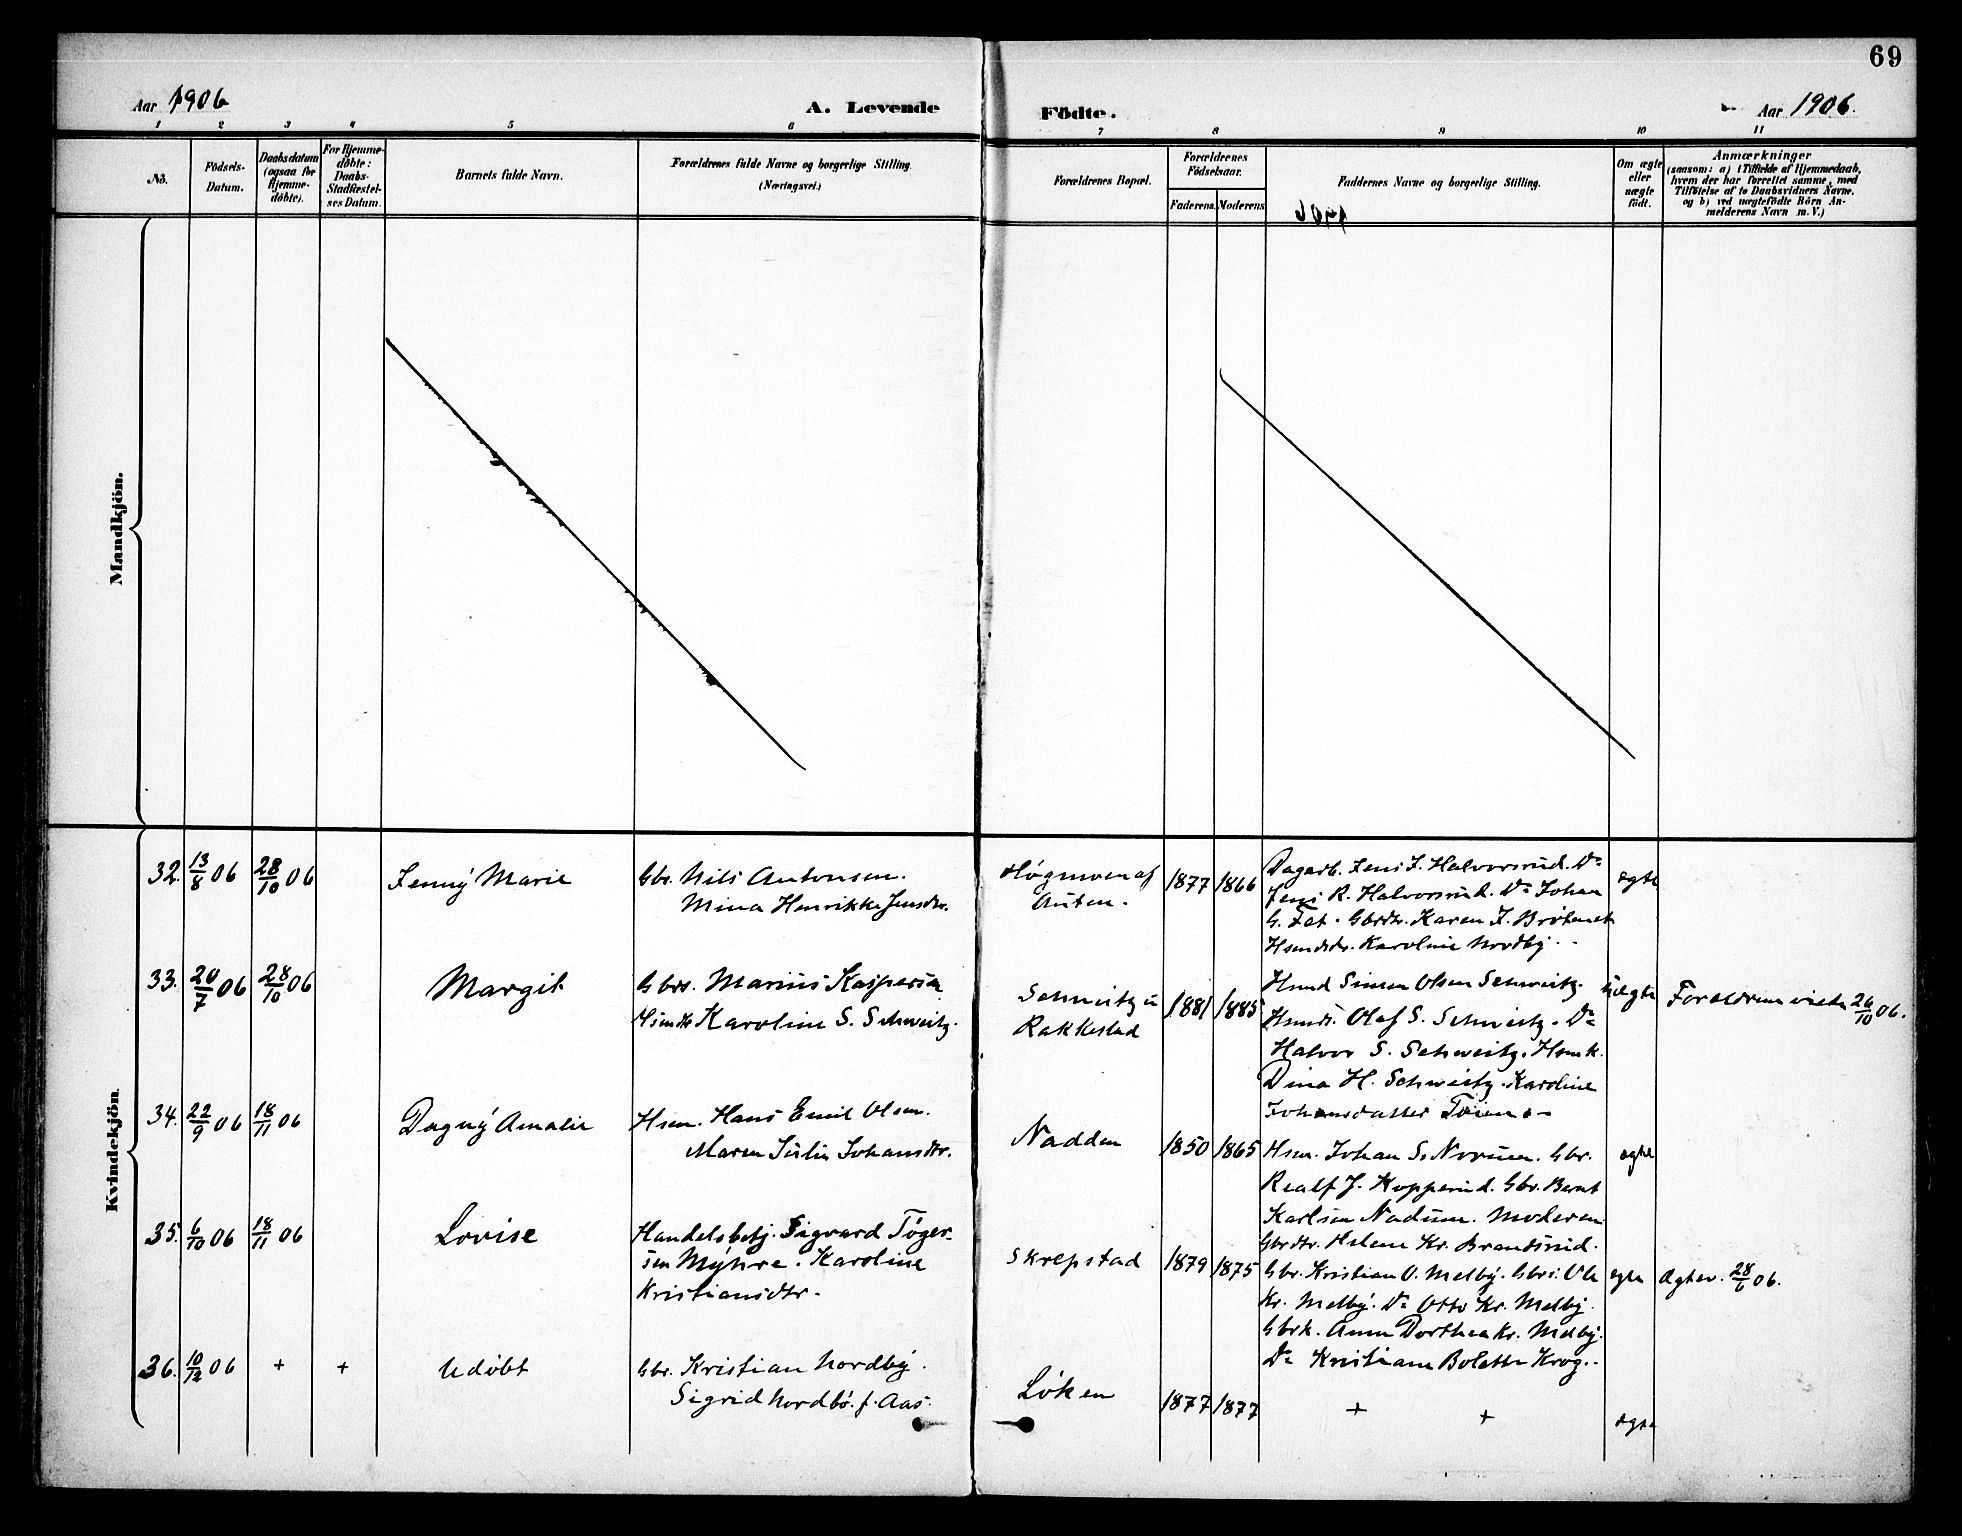 69
Aar 1906
A. Levende
Födte.
Aar 1906.
1 2 3 4 5 6 7 8 9 10 11
No.
Födsels-
Datum.
Daabsdatum
(ogsaa for
Hjemme-
døbte).
For Hjemme-
døbte:
Daabs-
Stadfæstel-
ses Datum.
Barnets fulde Navn.
Forældrenes fulde Navne og borgerlige Stilling.
(Næringsvei.)
Forældrenes Bopæl.
Forældrenes
Födselsaar.
Faderens. Moderens
Faddernes Navne og borgerlige Stilling.
Om ægte
eller
uægte
födt.
Anmærkninger
(saasom: a) i Tilfælde af Hjemmedaab,
hvem der har forrettet samme, med
Tilföielse af to Daabsvidners Navne,
og b) ved uægtefödte Börn An-
melderens Navn m. V.)
Mandkjön.
Kvindekjön.
32. 13/8 06 28/10 06 Jenny Marie
Gbr. Nils Antonsen.
Mina Henrikke Jensdtr.
Høgmoen af
Auten.
1877 1866
Dagarb. Jens J. Halvorsrud. Do
Jens R. Halvorsrud. Do Johan
G. Gbrdtr. Karen J. Bråtenet
Hsmdtr. Karoline Nordby.
ægte
33. 20/7 06 28/10 06 Margit
Gbrs. Marius Kaspersen
Karoline S. Schweitz.
Schweitz i
Rakkestad
1881 1885
Hsmd Simen Olsen Schweitz.
Hsmds. Olaf S. Schweitz. Do
Halvor S. Schweitz. Hsmk.
Dina H. Schweitz. Karoline
Johansdatter
uægte
Forældrene viede 26/10 06.
34. 22/9 06 18/11 06 Dagny Amalie
Hsm. Hans Emil Olsen.
Maren Julie Johansdtr.
Nadden
1850 1865
Hsm. Johan S. Norum. Gbr.
Realf J. Kopperud. Gbr. Bernt
Karlsen Nadum. Moderen
Gbrdtr. Helene Kr. Brandsrud.
ægte
35. 6/10 06 18/11 06 Lovise
Handelsbetj. Sigvard Tøger-
sen Myhre. Karoline
Kristiansdtr.
Skrepstad
1879 1875
Gbr. Kristian O. Melby. Gbrs. Ole
Kr. Melby. Do Otto Kr. Melby
Gbrk. Anne Dorthea Kr. Melby.
Do Kristiane Bolette Krog.
ægte
Ægtev. 28/6 06.
36. 10/12 06 + + Udøbt
Gbr. Kristian Nordby.
Sigrid Nordbø. f. Aas.
Løken
1877 1877
+ +
ægte